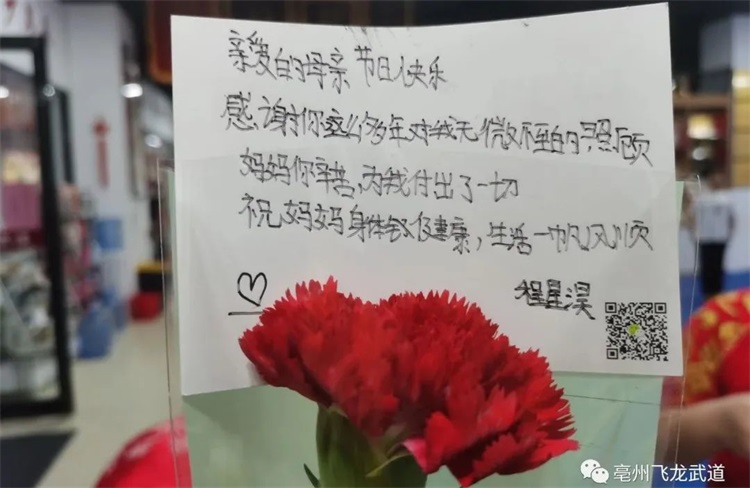 亲爱的母亲节日快乐
感谢你这么多年对我无微不至的照顾
妈妈你辛苦,为我付出了一切
祝妈妈身体健康,生活一帆风顺
程星淏
亳州飞龙武道